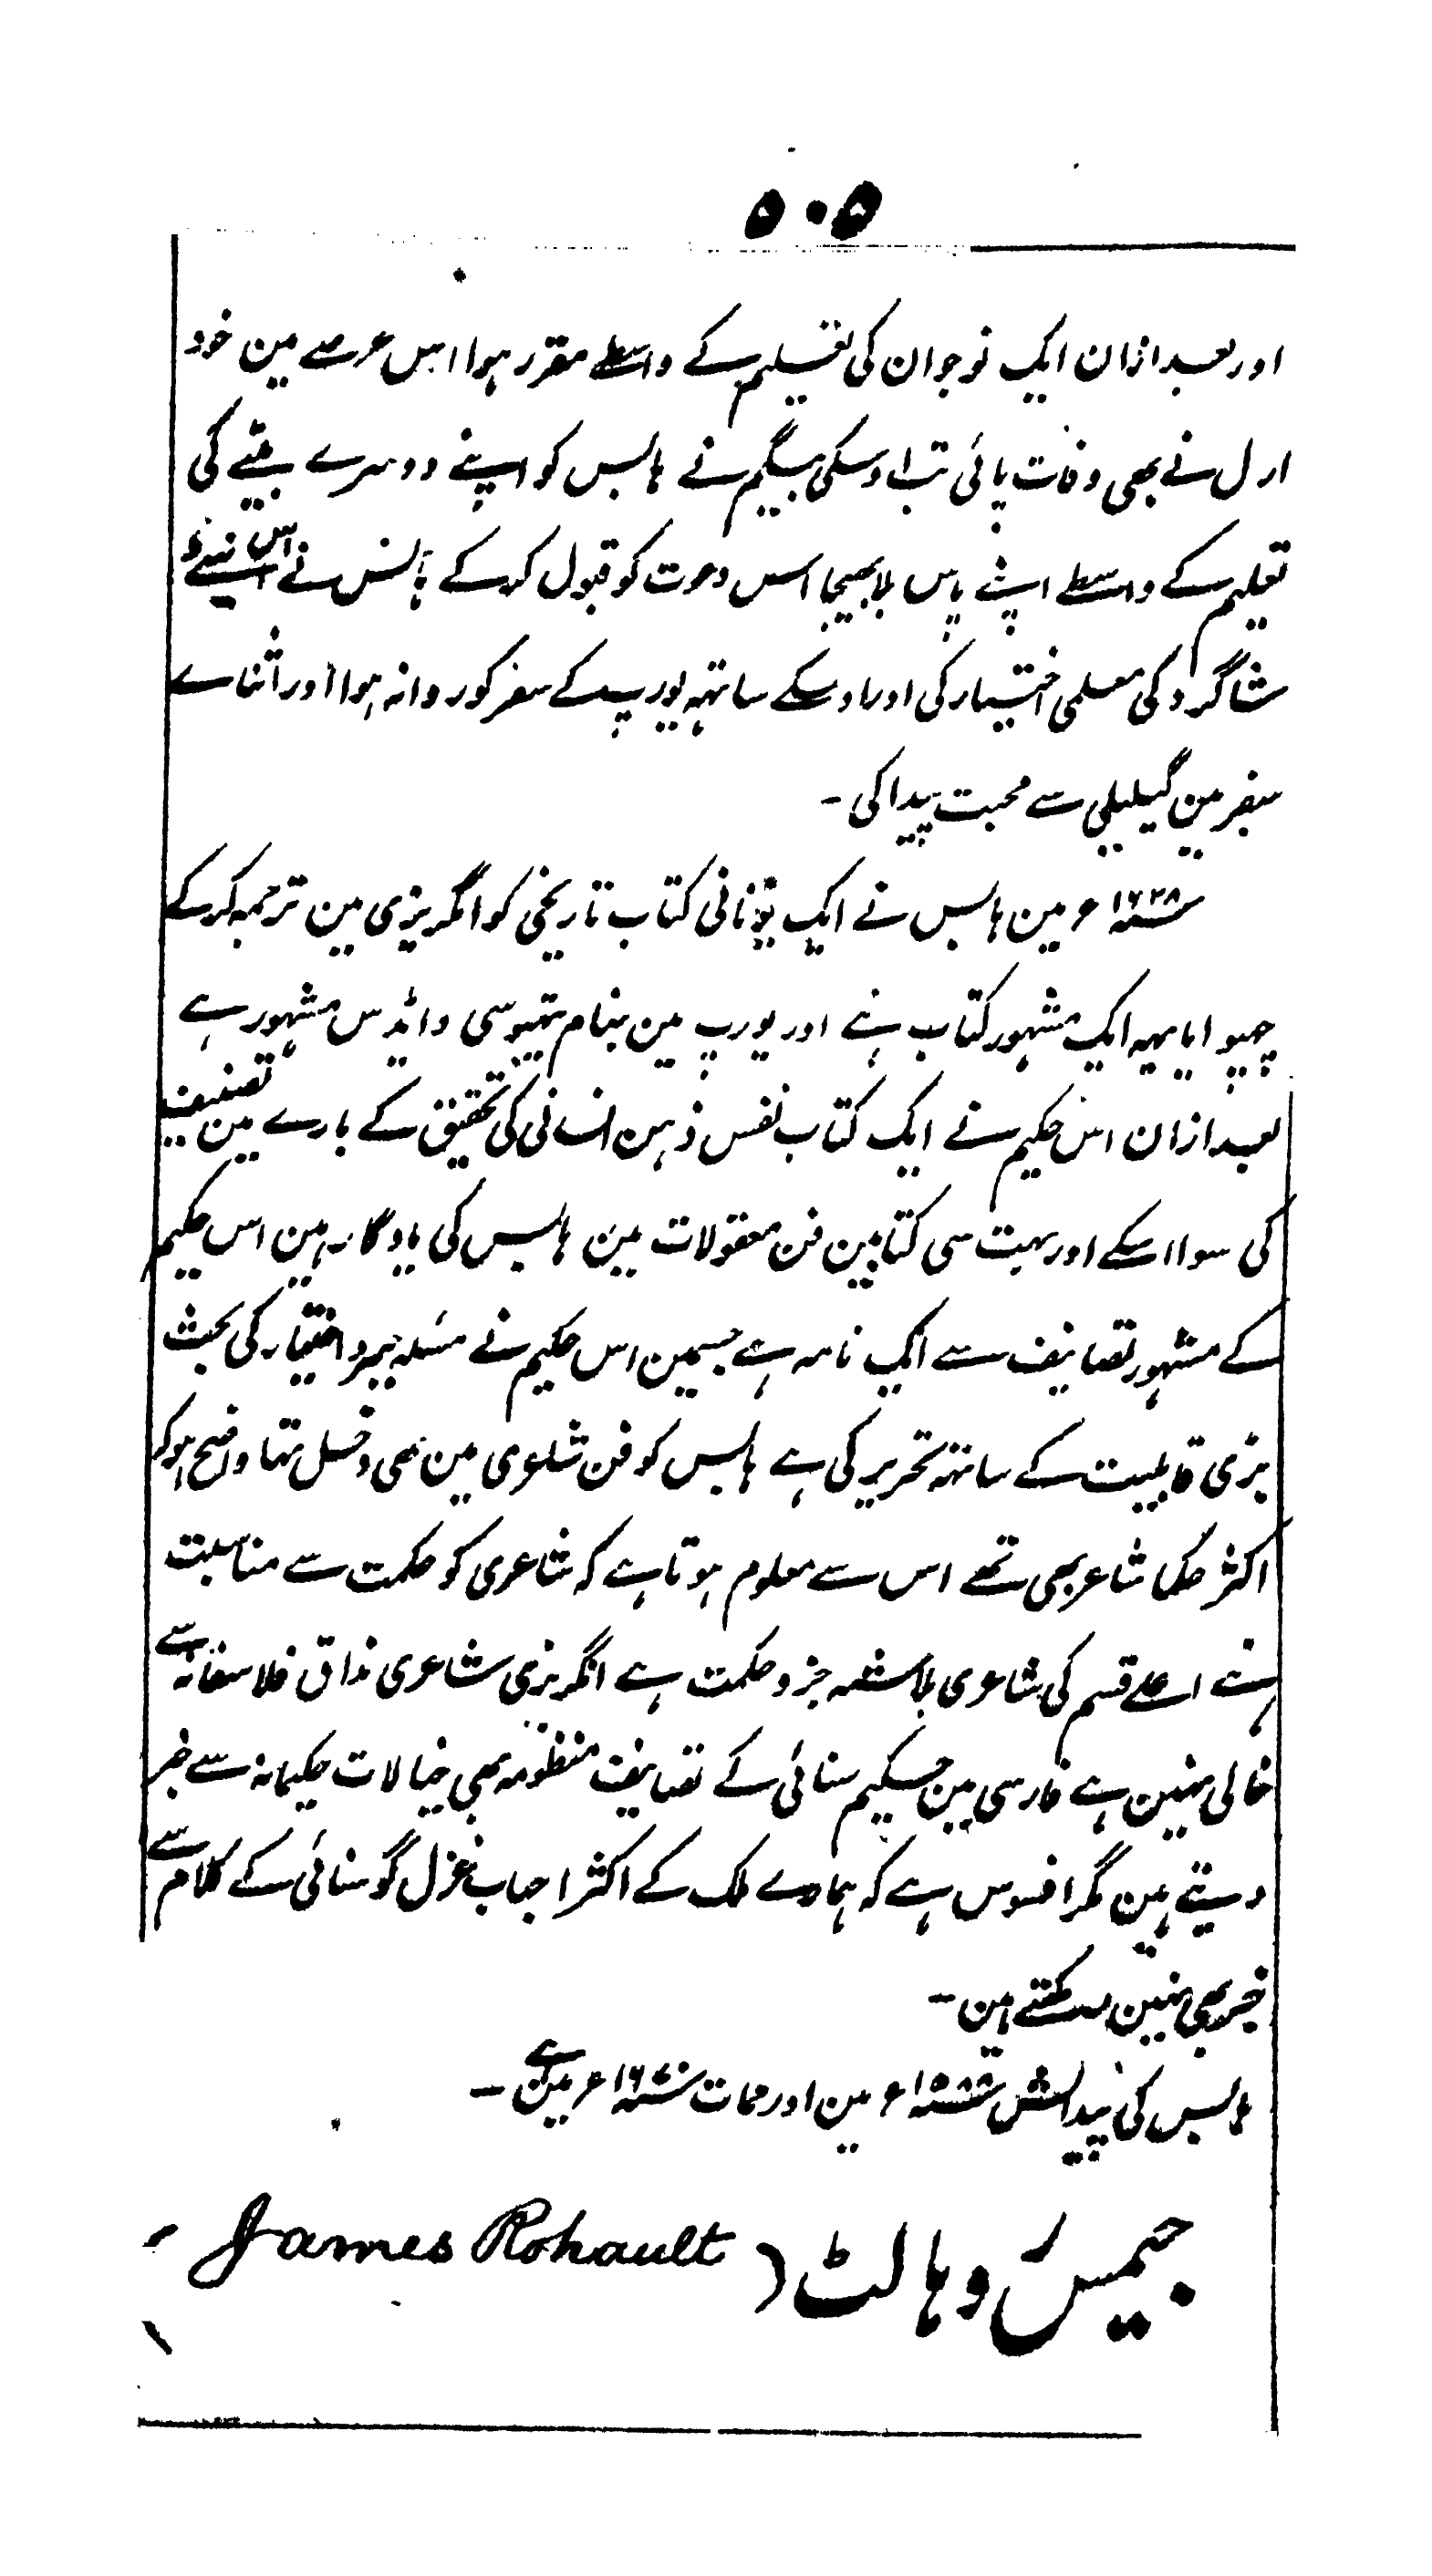 ۵۰۵
اور بعد ازان ایک نوجوان کی تعلیم کے واسطے مقرر ہوا اس عرصے مین خود
ارل نے بھی وفات پائی تب اوسکی بیگم نے ہابس کو اپنے دوسرے بیٹے کی
تعلیم کے واسطے اپنے پاس بلا بھیجا اس دعوت کو قبول کرکے ہابس نے اس نئے
شاگرد کی معلمی اختیار کی اور اوسکے ساتہہ یورپ کے سفر کو روانہ ہوا اور اثناے
سفر مین گیلیلی سے محبت پیدا کی۔
سنہ ۱۶۲۸ء مین ہابس نے ایک یونانی کتاب تاریخی کو انگریزی مین ترجمہ کرکے
چھپوایا یہہ ایک مشہور کتاب ہے اور یورپ مین بنام تہیوسی ڈائیڈس مشہور ہے
بعد ازان اس حکیم نے ایک کتاب نفس ذہن انسانی کی تحقیق کے بارے مین تصنیف
کی سوا اسکے اور بہت سی کتابین فن معقولات مین ہابس کی یادگار ہین اس حکیم
کے مشہور تصانیف سے ایک نامہ ہے جسمین اس حکیم نے مسئلہ جبر و اختیار کی بحث
بڑی قابلیت کے ساتہہ تحریر کی ہے ہابس کو فن شاعری مین بھی دخل تہا واضح ہو کہ
اکثر حکما شاعر بھی تھے اس سے معلوم ہوتا ہے کہ شاعری کو حکمت سے مناسبت
ہے اعلے قسم کی شاعری بلاشبہ جزو حکمت ہے انگریزی شاعری مذاق فلاسفانہ سے
خالی نہین ہے فارسی مین حکیم سنائی کے تصانیف منظومہ بھی خیالات حکیمانہ سے خبر
دیتے ہین مگر افسوس ہے کہ ہمارے ملک کے اکثر احباب غزل گو سنائی کے کلام سے
خبر بھی نہین رکھتے ہین۔
ہابس کی پیدایش سنہ ۱۵۸۸ء مین اور ممات سنہ ۱۶۷۰ء مین ہے۔
جیمس روہالٹ (James Rohault)